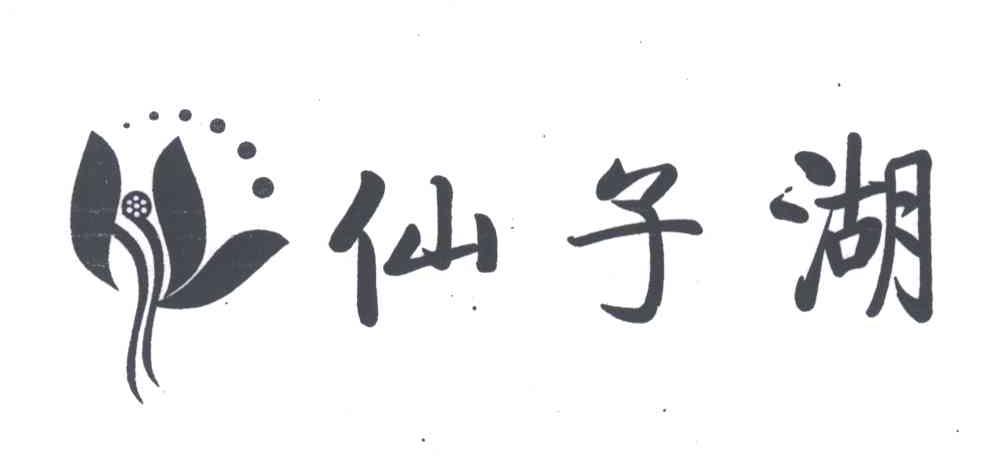 仙子湖